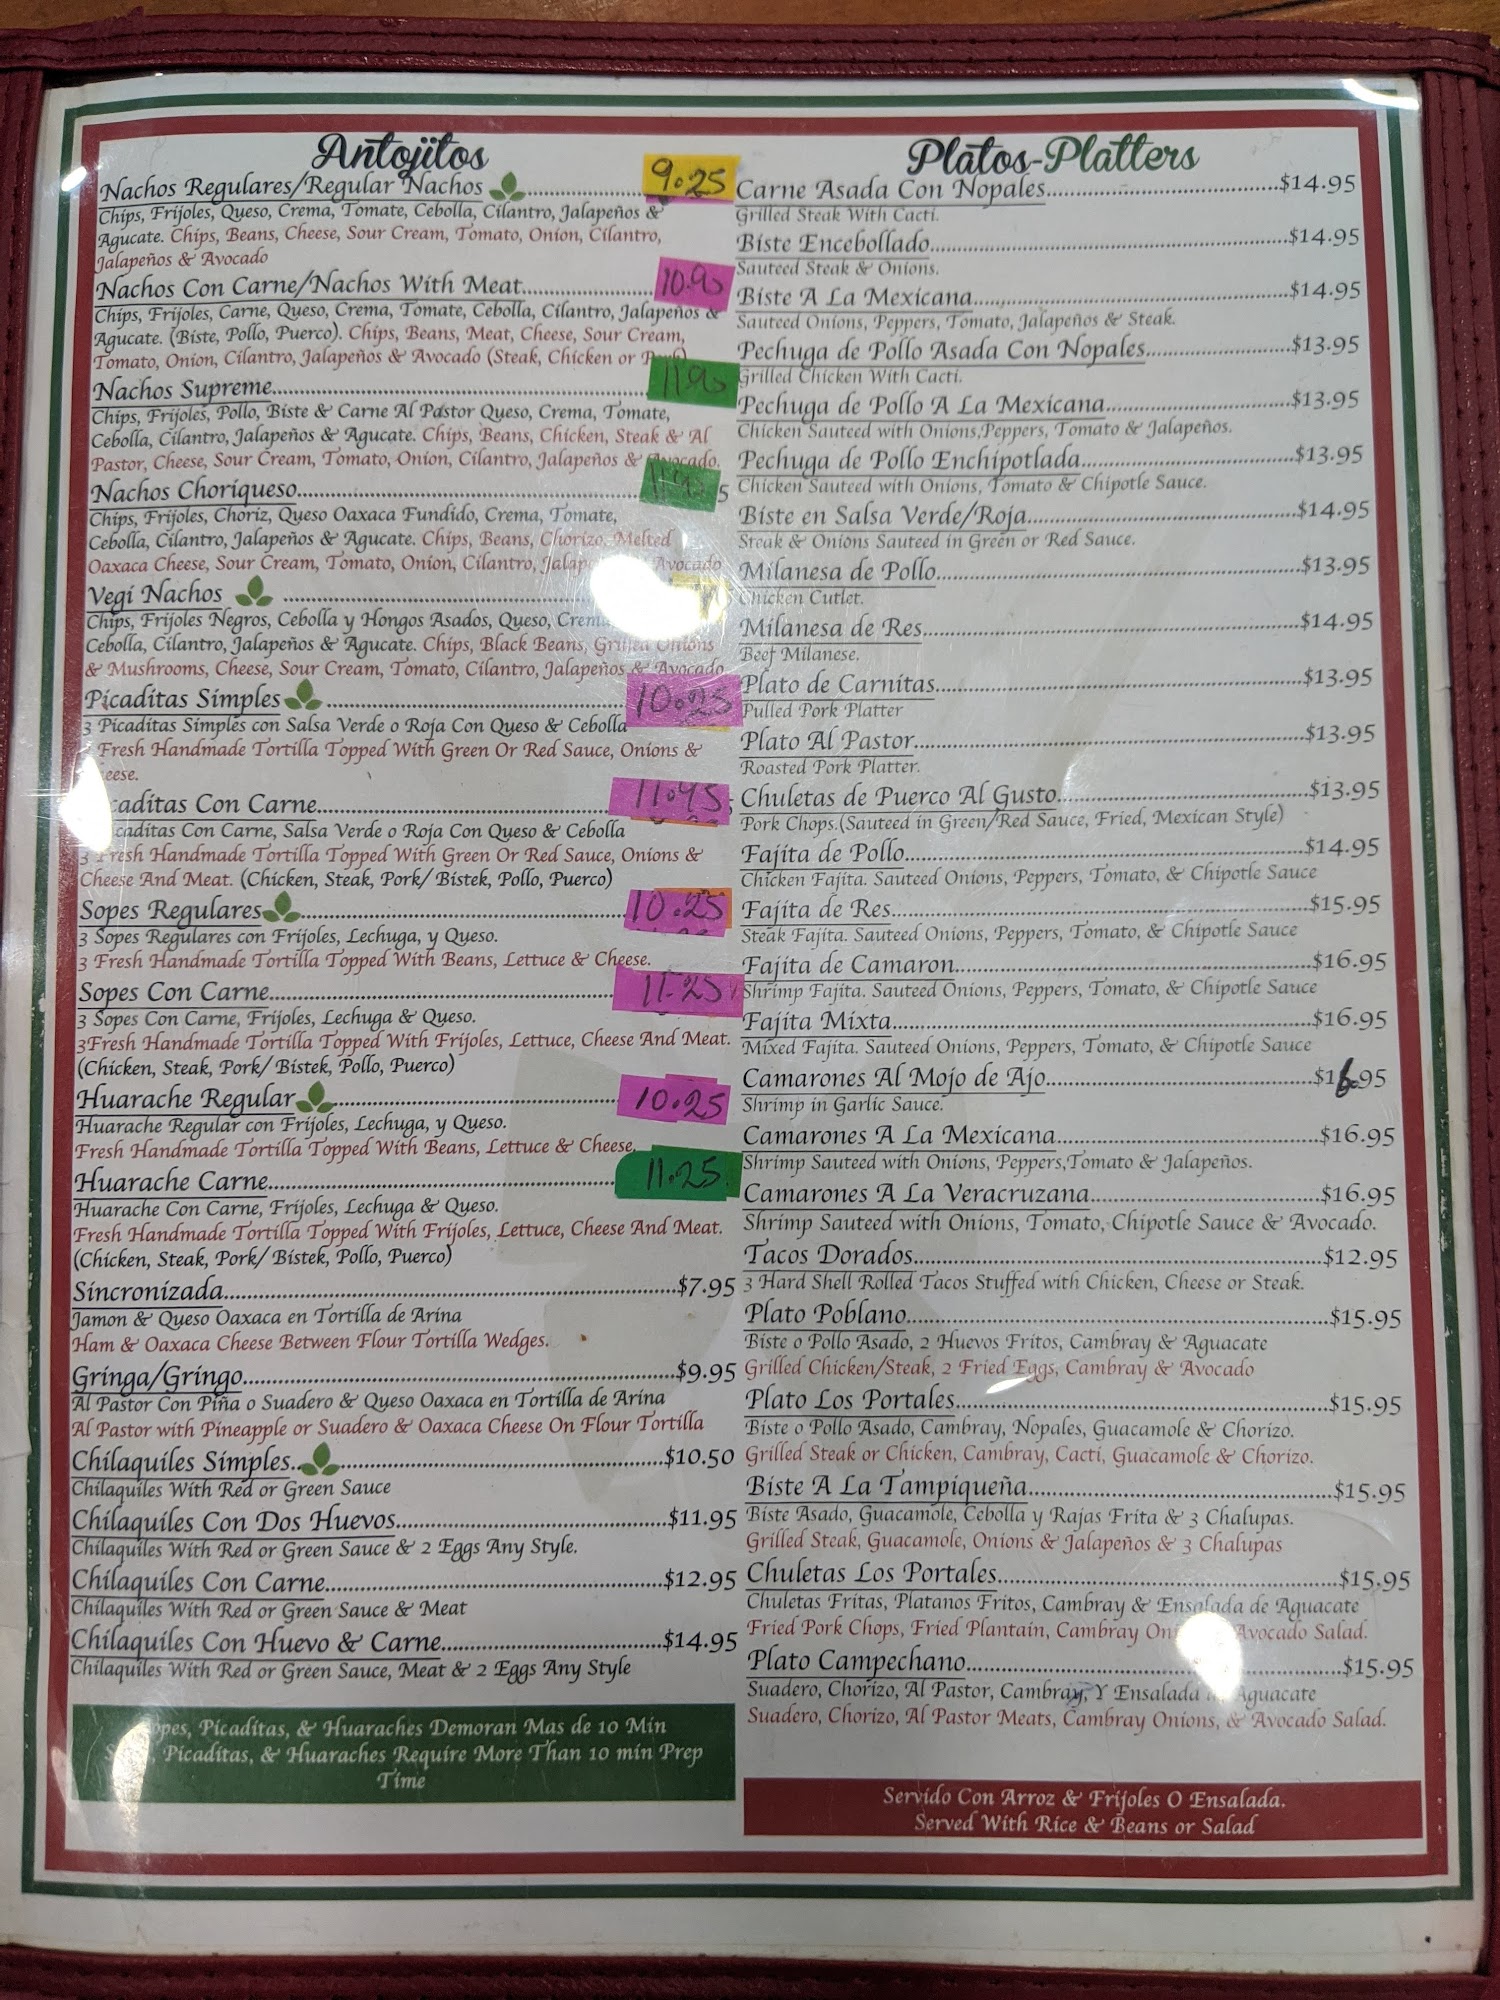 Antojitos
Nachos Regulares/Regular Nachos 9.25
Chips, Frijoles, Queso, Crema, Tomate, Cebolla, Cilantro, Jalapeños &
Agucate. Chips, Beans, Cheese, Sour Cream, Tomato, Onion, Cilantro,
Jalapeños & Avocado
Nachos Con Carne/Nachos With Meat 10.95
Chips, Frijoles, Carne, Queso, Crema, Tomate, Cebolla, Cilantro, Jalapeños &
Agucate. (Biste, Pollo, Puerco). Chips, Beans, Meat, Cheese, Sour Cream,
Tomato, Onion, Cilantro, Jalapeños & Avocado (Steak, Chicken or
Nachos Supreme 11.95
Chips, Frijoles, Pollo, Biste & Carne Al Pastor Queso, Crema, Tomate,
Cebolla, Cilantro, Jalapeños & Agucate. Chips, Beans, Chicken, Steak & Al
Pastor, Cheese, Sour Cream, Tomato, Onion, Cilantro, Jalapeños & Avocado.
Nachos Choriqueso
Chips, Frijoles, Choriz, Queso Oaxaca Fundido, Crema, Tomate,
Cebolla, Cilantro, Jalapeños & Agucate. Chips, Beans, Chorizo, Melted
Oaxaca Cheese, Sour Cream, Tomato, Onion, Cilantro, Avocado
Vegi Nachos
Chips, Frijoles Negros, Cebolla y Hongos Asados, Queso,
Cebolla, Cilantro, Jalapeños & Agucate. Chips, Black Beans, Grilled Onions
& Mushrooms, Cheese, Sour Cream, Tomato, Cilantro, Jalapeños & Avocado
Picaditas Simples 10.25
3 Picaditas Simples con Salsa Verde o Roja Con Queso & Cebolla
Fresh Handmade Tortilla Topped With Green Or Red Sauce, Onions &
eese.
caditas Con Carne 11.45
caditas Con Carne, Salsa Verde o Roja Con Queso & Cebolla
3 Fresh Handmade Tortilla Topped With Green Or Red Sauce, Onions &
Cheese And Meat. (Chicken, Steak, Pork/ Bistek, Pollo, Puerco)
Sopes Regulares 10.25
3 Sopes Regulares con Frijoles, Lechuga, y Queso.
3 Fresh Handmade Tortilla Topped With Beans, Lettuce & Cheese.
Sopes Con Carne 11.25
3 Sopes Con Carne, Frijoles, Lechuga & Queso.
3Fresh Handmade Tortilla Topped With Frijoles, Lettuce, Cheese And Meat.
(Chicken, Steak, Pork/ Bistek, Pollo, Puerco)
Huarache Regular 10.25
Huarache Regular con Frijoles, Lechuga, y Queso.
Fresh Handmade Tortilla Topped With Beans, Lettuce & Cheese.
Huarache Carne 11.25
Huarache Con Carne, Frijoles, Lechuga & Queso.
Fresh Handmade Tortilla Topped With Frijoles, Lettuce, Cheese And Meat.
(Chicken, Steak, Pork/ Bistek, Pollo, Puerco)
Sincronizada $7.95
Jamon & Queso Oaxaca en Tortilla de Arina
Ham & Oaxaca Cheese Between Flour Tortilla Wedges.
Gringa/Gringo $9.95
Al Pastor Con Piña o Suadero & Queso Oaxaca en Tortilla de Arina
Al Pastor with Pineapple or Suadero & Oaxaca Cheese On Flour Tortilla
Chilaquiles Simples $10.50
Chilaquiles With Red or Green Sauce
Chilaquiles Con Dos Huevos $11.95
Chilaquiles With Red or Green Sauce & 2 Eggs Any Style.
Chilaquiles Con Carne $12.95
Chilaquiles With Red or Green Sauce & Meat
Chilaquiles Con Huevo & Carne $14.95
Chilaquiles With Red or Green Sauce, Meat & 2 Eggs Any Style
opes, Picaditas, & Huaraches Demoran Mas de 10 Min
Picaditas, & Huaraches Require More Than 10 min Prep
Time
Platos-Platters
Carne Asada Con Nopales $14.95
Grilled Steak With Cacti.
Biste Encebollado $14.95
Sauteed Steak & Onions.
Biste A La Mexicana $14.95
Sauteed Onions, Peppers, Tomato, Jalapeños & Steak.
Pechuga de Pollo Asada Con Nopales $13.95
Grilled Chicken With Cacti.
Pechuga de Pollo A La Mexicana $13.95
Chicken Sauteed with Onions,Peppers, Tomato & Jalapeños.
Pechuga de Pollo Enchipotlada $13.95
Chicken Sauteed with Onions, Tomato & Chipotle Sauce.
Biste en Salsa Verde/Roja $14.95
Steak & Onions Sauteed in Green or Red Sauce.
Milanesa de Pollo $13.95
Chicken Cutlet.
Milanesa de Res $14.95
Beef Milanese.
Plato de Carnitas $13.95
Pulled Pork Platter
Plato Al Pastor $13.95
Roasted Pork Platter.
Chuletas de Puerco Al Gusto $13.95
Pork Chops.(Sauteed in Green/Red Sauce, Fried, Mexican Style)
Fajita de Pollo $14.95
Chicken Fajita. Sauteed Onions, Peppers, Tomato, & Chipotle Sauce
Fajita de Res $15.95
Steak Fajita. Sauteed Onions, Peppers, Tomato, & Chipotle Sauce
Fajita de Camaron $16.95
Shrimp Fajita. Sauteed Onions, Peppers, Tomato, & Chipotle Sauce
Fajita Mixta $16.95
Mixed Fajita. Sauteed Onions, Peppers, Tomato, & Chipotle Sauce
Camarones Al Mojo de Ajo $16.95
Shrimp in Garlic Sauce.
Camarones A La Mexicana $16.95
Shrimp Sauteed with Onions, Peppers,Tomato & Jalapeños.
Camarones A La Veracruzana $16.95
Shrimp Sauteed with Onions, Tomato, Chipotle Sauce & Avocado.
Tacos Dorados $12.95
3 Hard Shell Rolled Tacos Stuffed with Chicken, Cheese or Steak.
Plato Poblano $15.95
Biste o Pollo Asado, 2 Huevos Fritos, Cambray & Aguacate
Grilled Chicken/Steak, 2 Fried Eggs, Cambray & Avocado
Plato Los Portales $15.95
Biste o Pollo Asado, Cambray, Nopales, Guacamole & Chorizo.
Grilled Steak or Chicken, Cambray, Cacti, Guacamole & Chorizo.
Biste A La Tampiqueña $15.95
Biste Asado, Guacamole, Cebolla y Rajas Frita & 3 Chalupas.
Grilled Steak, Guacamole, Onions & Jalapeños & 3 Chalupas
Chuletas Los Portales $15.95
Chuletas Fritas, Platanos Fritos, Cambray & Ensalada de Aguacate
Fried Pork Chops, Fried Plantain, Cambray Avocado Salad.
Plato Campechano $15.95
Suadero, Chorizo, Al Pastor, Cambray, Y Ensalada Aguacate
Suadero, Chorizo, Al Pastor Meats, Cambray Onions, & Avocado Salad.
Servido Con Arroz & Frijoles O Ensalada.
Served With Rice & Beans or Salad